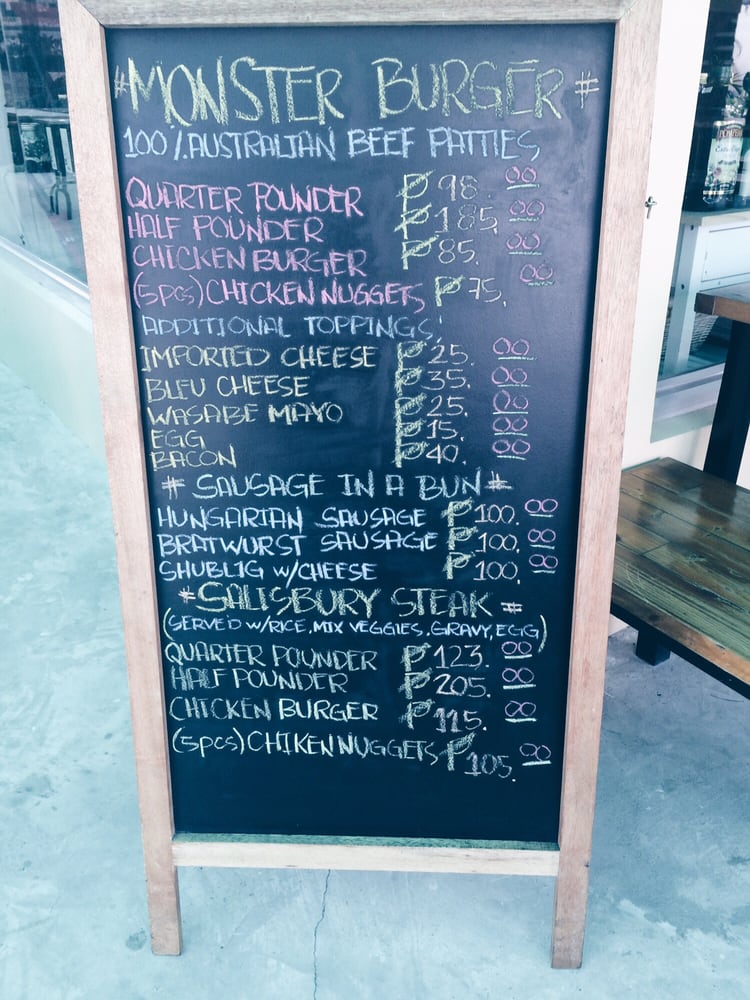 #MONSTER BURGER#
100%.AUSTRALIAN BEEF PATTIES
QUARTER POUNDER ₱98.00
HALF POUNDER ₱185.00
CHICKEN BURGER ₱85.00
(5pcs) CHICKEN NUGGETS ₱75.00
ADDITIONAL TOPPINGS:
IMPORTED CHEESE ₱25.00
BLEU CHEESE ₱35.00
WASABE MAYO ₱25.00
EGG ₱15.00
BACON ₱40.00
# SAUSAGE IN A BUN #
HUNGARIAN SAUSAGE ₱100.00
BRATWURST SAUSAGE ₱100.00
SHUBLIG W/CHEESE ₱100.00
#SALISBURY STEAK #
(SERVED W/RICE, MIX VEGGIES, GRAVY, EGG)
QUARTER POUNDER ₱123.00
HALF POUNDER ₱205.00
CHICKEN BURGER ₱115.00
(5pcs) CHIKEN NUGGETS ₱105.00